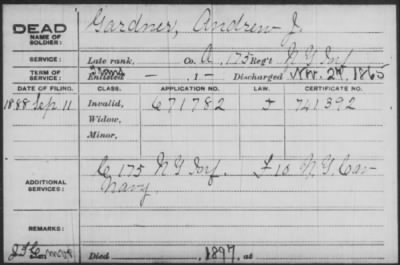 DEAD
NAME OF SOLDIER:
Gardner, Andrew J.
SERVICE:
Late rank, Co. A, 175 Reg't N.Y. Inf
TERM OF SERVICE:
Enlisted — , 1 — Discharged Nov. 2d, 1865
DATE OF FILING. CLASS. APPLICATION NO. LAW. CERTIFICATE NO.
1888 Sep. 11 Invalid, 671782 J 741392
Widow,
Minor,
ADDITIONAL SERVICES:
C 175 N.Y. Inf. F 10 N.Y. Cav
Navy.
REMARKS:
Died , 1897, at